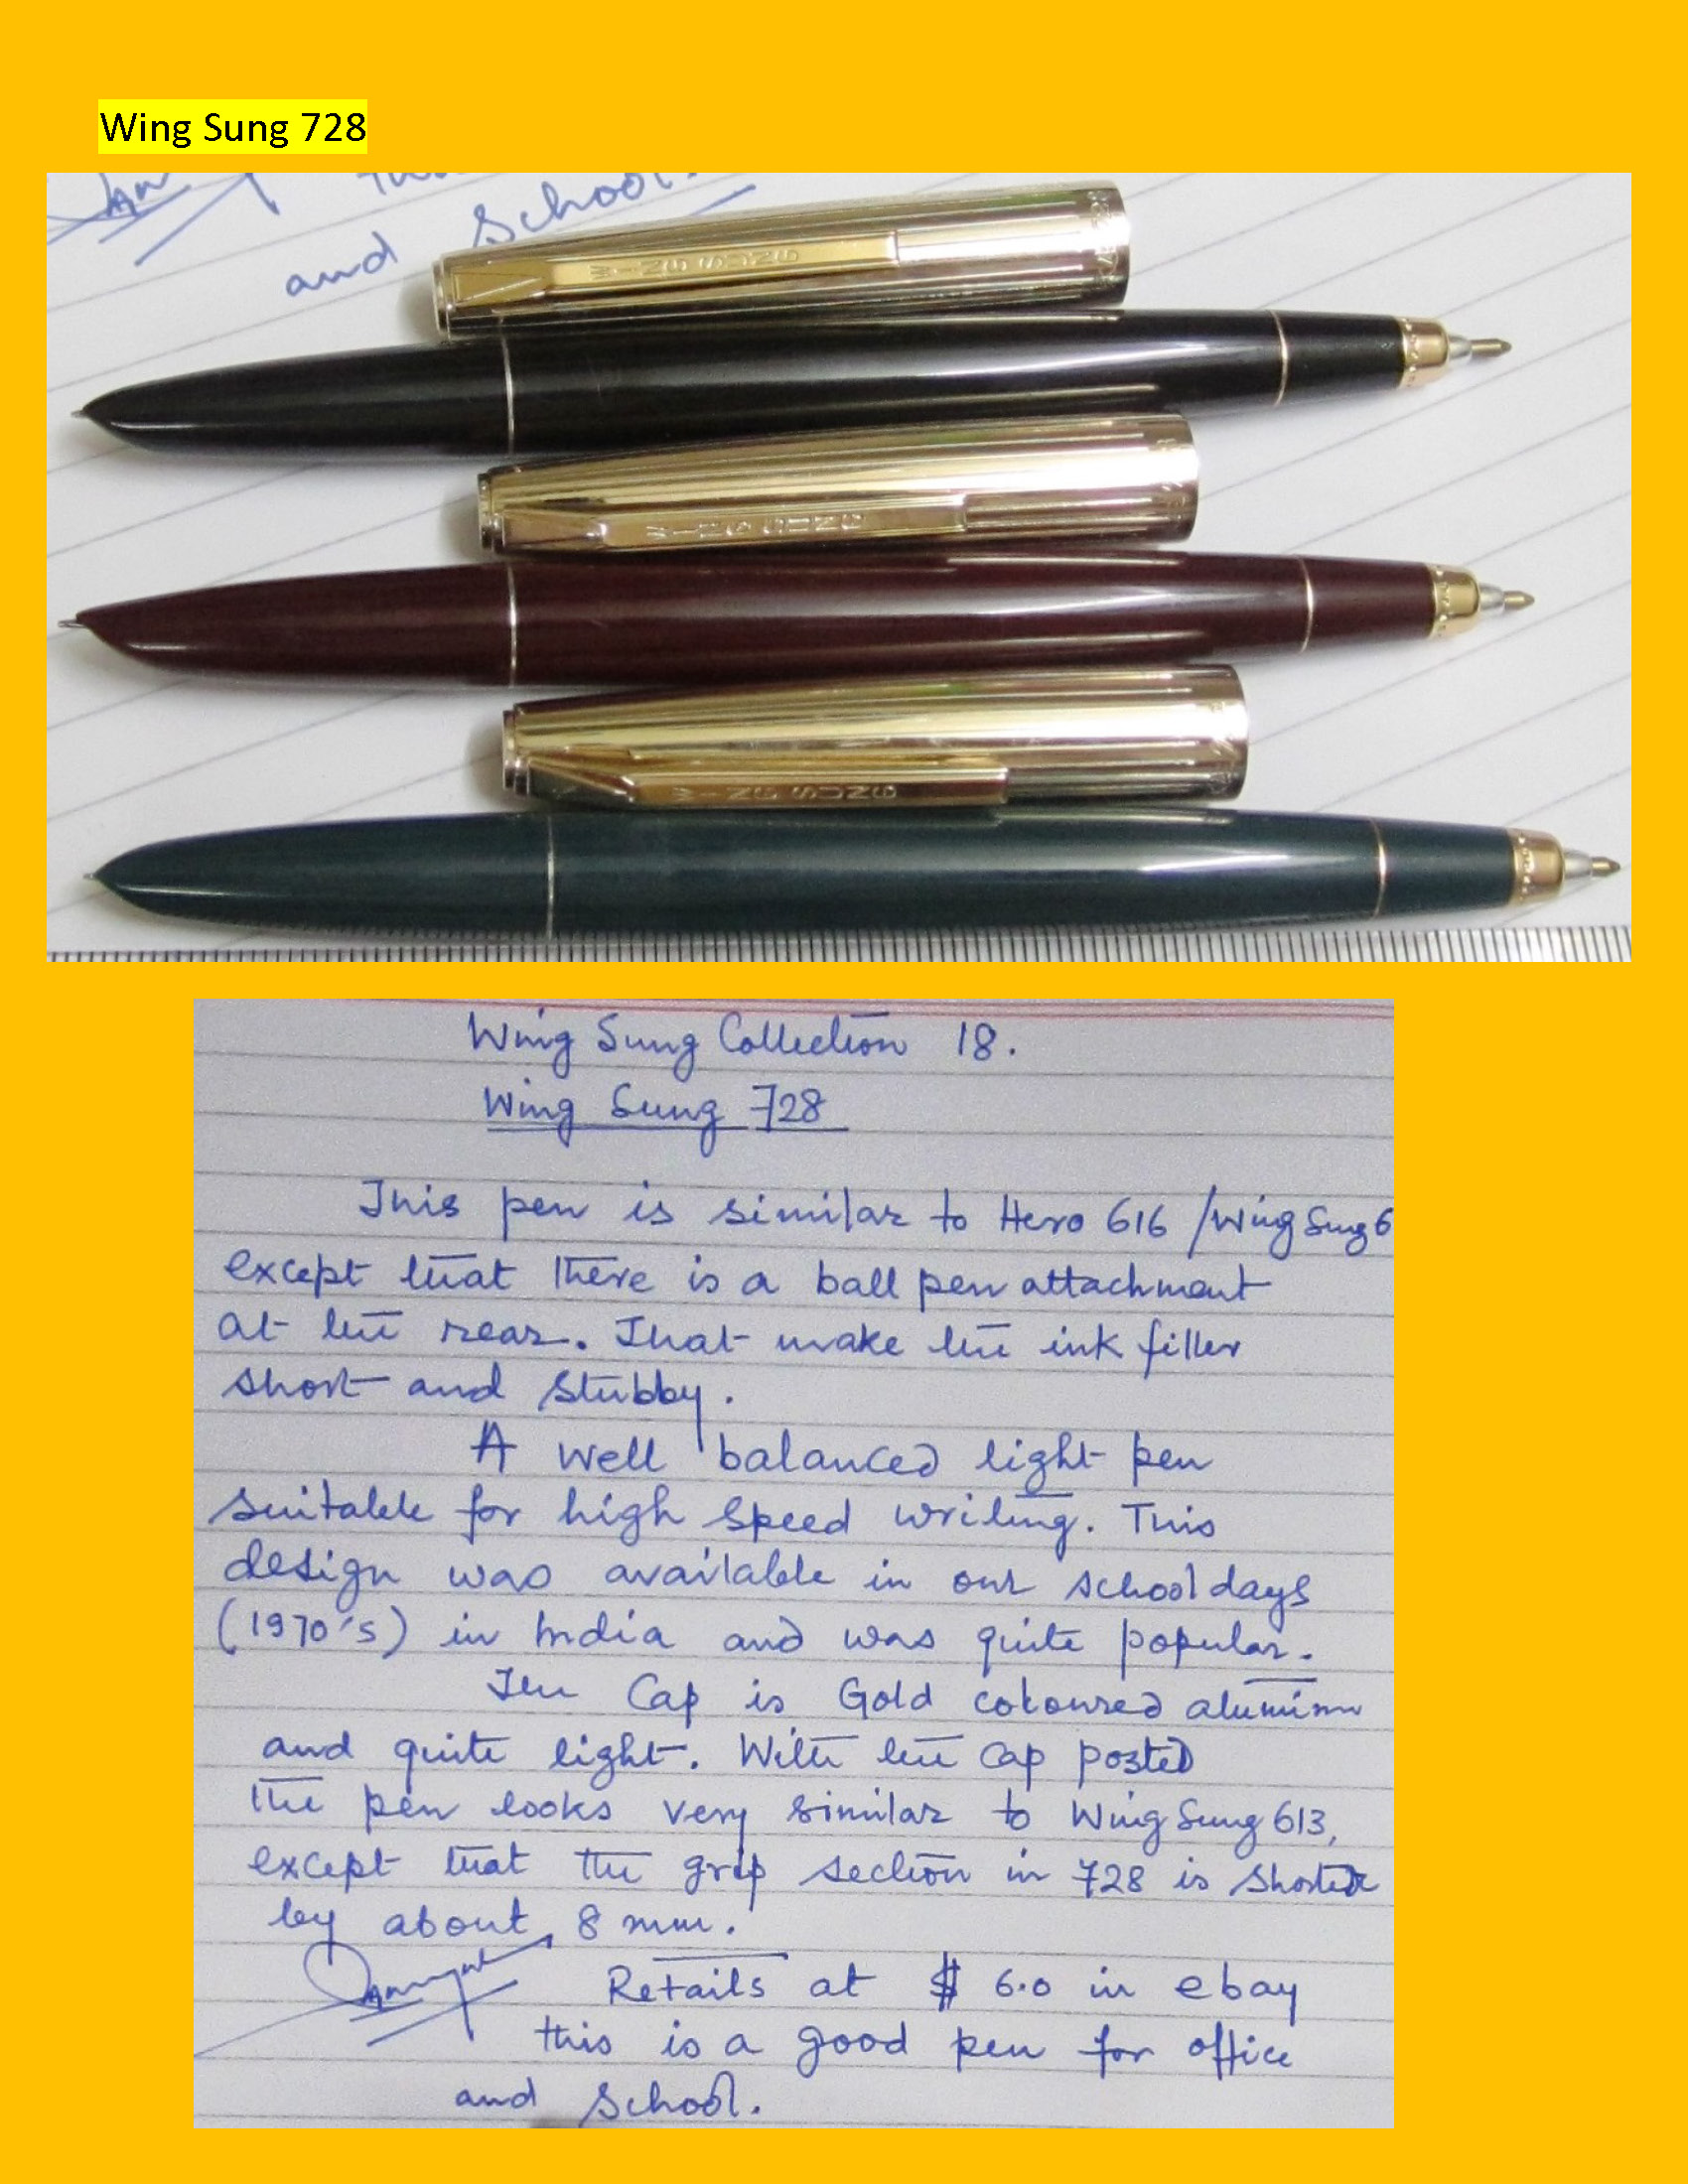 Wing Sung 728
and School.
WING SUNG
WING SUNG
WING SUNG
Wing Sung Collection 18.
Wing Sung 728
This pen is similar to Hero 616 / Wing Sung 6
except that there is a ball pen attachment
at the rear. That make the ink filler
short and stubby.
A well balanced light pen
suitable for high speed writing. This
design was available in our school days
(1970's) in India and was quite popular.
The Cap is Gold coloured alumimn
and quite light. With the cap posted
the pen looks very similar to Wing Sung 613,
except that the grip section in 728 is shorter
by about 8 mm.
Retails at $ 6.0 in ebay
this is a good pen for office
and School.